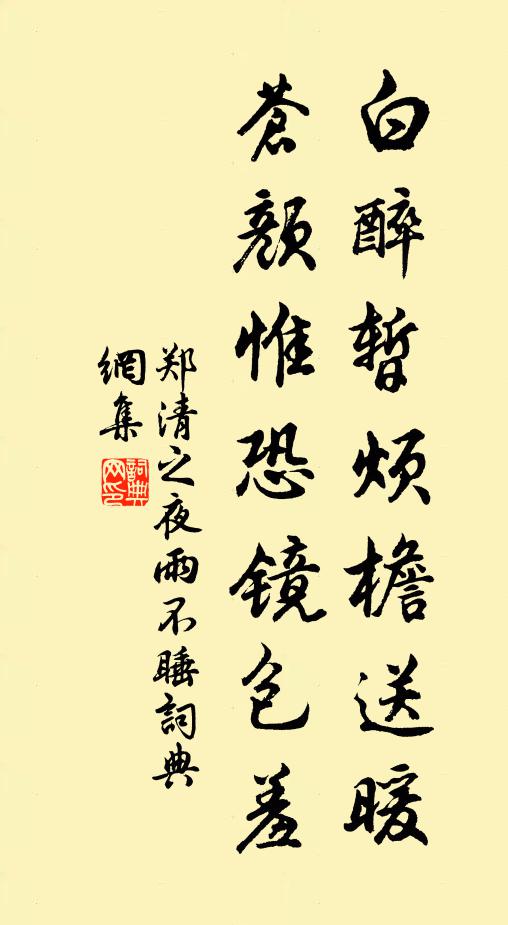 白醉暫烦檐送暖
蒼颜惟恐镜包羞
郑清之夜雨不睡詞典
網集
詞典
网印